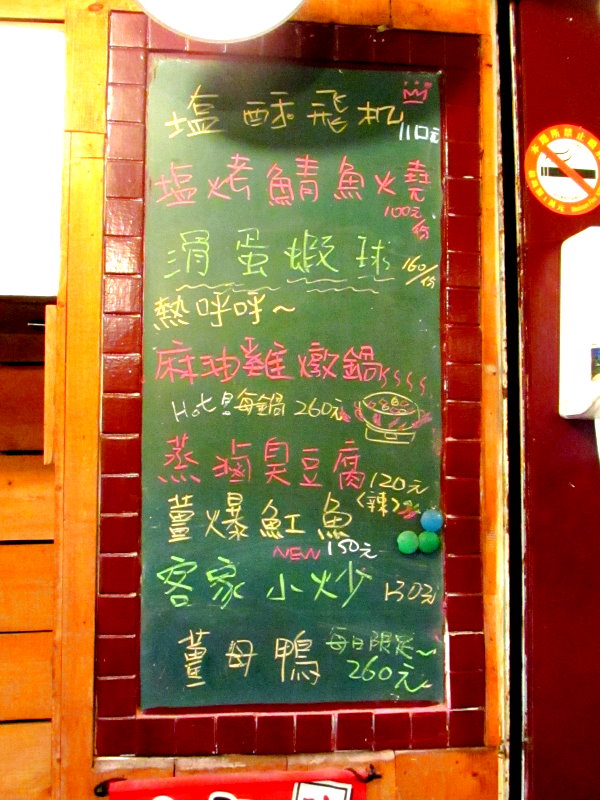 塩酥飛机 110元
塩烤鯖魚火燒 100元/份
滑蛋蝦球 160/份
熱呼呼~
麻油雞燉鍋
Hot!! 每鍋 260元
蒸滷臭豆腐 120元
(辣)
薑爆魟魚
NEW 150元
客家小炒 130元
薑母鴨 每日限定~
260元